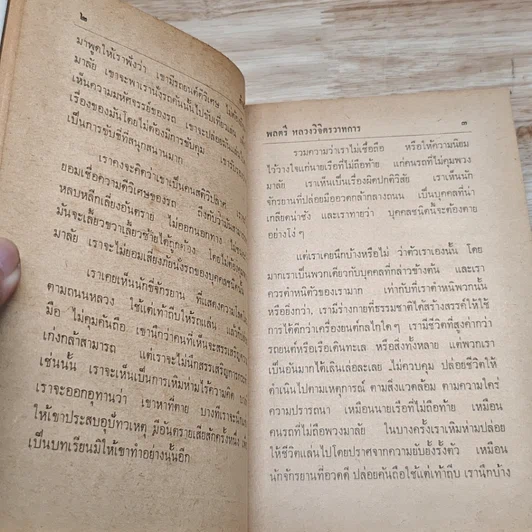 ๒
มาพูดให้เราฟังว่า เขามีรถยนต์ดีวิเศษ
มาลัย เขาจะพาเรานั่งรถคันนั้นไปขับเที่ยวเล่น
เห็นความมหัศจรรย์ของรถ เขาจะปล่อยให้รถแล่นไปตาม
เรื่องของมันโดยไม่ต้องมีการขับคุม
เป็นการขับขี่ที่สนุกสนานมาก
เราคงจะคิดว่าเขาเป็นคนสติวิปลาศ
ยอมเชื่อความดีวิเศษของรถ
หลบหลีกเลี่ยงอันตราย ไม่ออกนอกทาง
มันจะเลี้ยวขวาเลี้ยวซ้ายได้ถูกต้อง โดยไม่ต้อง
มาลัย เราจะไม่ยอมเสี่ยงภัยนั่งรถของบุคคลชนิดนั้น
เราเคยเห็นนักขี่จักรยาน ที่แสดงความ
ตามถนนหลวง ใช้แต่เท้าถีบให้รถแล่น แล้วปล่อย
มือ ไม่คุมคันถือ เขานึกว่าคนที่เห็นจะสรรเสริญ
เก่งกล้าสามารถ แต่เราจะไม่นึกสรรเสริญการกระทำ
เช่นนั้น เราจะเห็นเป็นการเหิมห่ามไร้ความคิด
เราจะออกอุทานว่า เขาหาที่ตาย บางทีเราจะนึก
ให้เขาประสบอุปัทวเหตุ มีอันตรายเสียสักครั้งหนึ่ง เพื่อ
เป็นบทเรียนมิให้เขาทำอย่างนั้นอีก
พลตรี หลวงวิจิตรวาทการ ๓
รวมความว่าเราไม่เชื่อถือ หรือให้ความนิยม
ไว้วางใจแก่นายเรือที่ไม่ถือท้าย แก่คนรถที่ไม่คุมพวง
มาลัย เราเห็นเป็นเรื่องผิดปกติวิสัย เราเห็นนัก
จักรยานที่ปล่อยมือออกกล้ากลางถนน เป็นบุคคลที่น่า
เกลียดน่าชัง และเราทายว่า บุคคลชนิดนี้จะต้องตาย
อย่างโง่ ๆ
แต่เราเคยนึกบ้างหรือไม่ ว่าตัวเราเองนั้น โดย
มากเราเป็นพวกเดียวกับบุคคลที่กล่าวข้างต้น และเรา
ควรตำหนิตัวของเรามาก เท่ากับที่เราตำหนิพวกนั้น
หรือยิ่งกว่า เรามีร่างกายที่ธรรมชาติได้สร้างสรรค์ให้ใช้
การได้ดีกว่าเครื่องยนต์กลไกใด ๆ เรามีชีวิตที่สูงค่ากว่า
รถยนต์หรือเรือเดินทะเล หรือสิ่งทั้งหลาย แต่พวกเรา
เป็นอันมากได้เลินเล่อละเลย ไม่ควบคุม ปล่อยชีวิตให้
ดำเนินไปตามเหตุการณ์ ตามสิ่งแวดล้อม ตามความใคร่
ความปรารถนา เหมือนนายเรือที่ไม่ถือท้าย เหมือน
คนรถที่ไม่ถือพวงมาลัย ในบางครั้งเราเหิมห่ามปล่อย
ให้ชีวิตแล่นไปโดยปราศจากความยับยั้งรั้งตัว เหมือน
นักจักรยานที่อวดดี ปล่อยคันถือใช้แต่เท้าถีบ เรานึกบ้าง